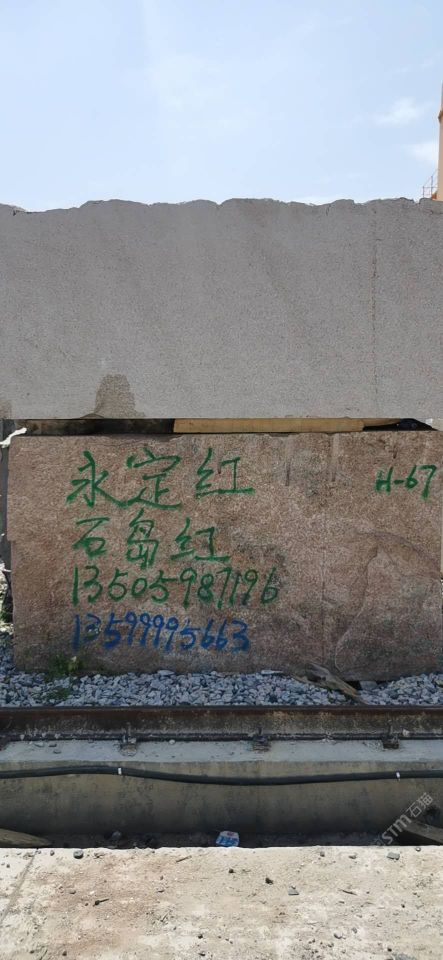 永定红
H-67
石岛红
13505987196
13599995663
STM石猫